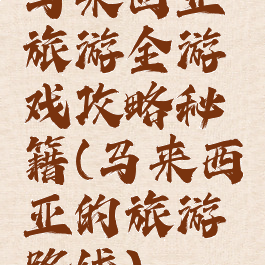 马来西亚
旅游全游
戏攻略秘
籍(马来西
亚的旅游
路线)